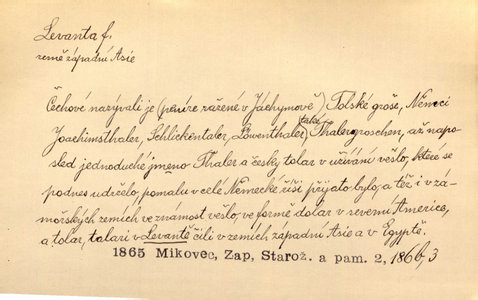 Levanta f.
země západní Asie
Čechové nazývali je (peníze ražené v Jáchymově) Tolské groše, Němci
Joachimsthaler, Schlickentaler, Löwenthaler, také Thalergroschen, až napo-
sled jednoduché jmeno Thaler a český tolar v užívání vešlo, kteréž se
podnes udrželo, pomalu v celé Německé říši přijato bylo, a též i v zá-
mořských zemích ve známost vešlo, ve formě dolar v severní Americe,
a tolar, talari v Levantě čili v zemích západní Asie a v Egyptě.
1865 Mikovec, Zap, Starož. a pam. 2, 186b, 3